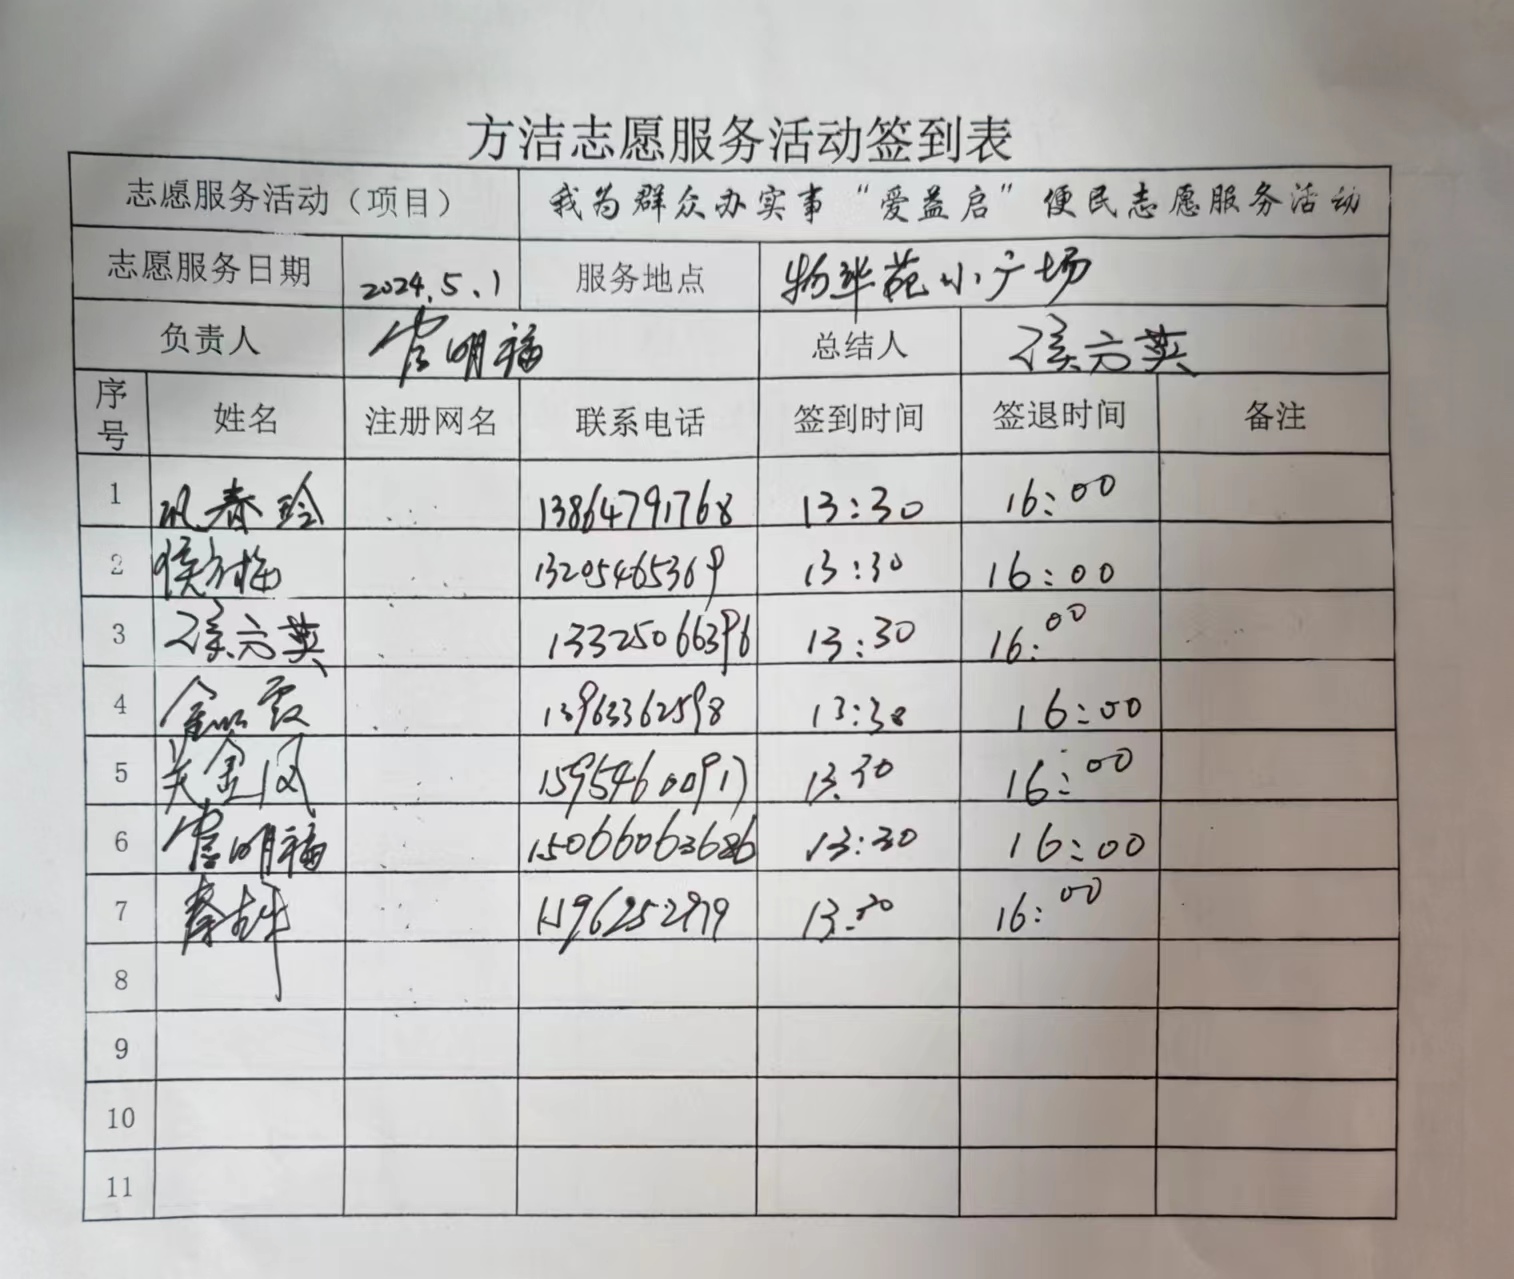 方洁志愿服务活动签到表
志愿服务活动（项目） 我为群众办实事“爱益启”便民志愿服务活动
志愿服务日期 2024.5.1 服务地点 物华苑小广场
负责人 官明福 总结人 侯方英
序号 姓名 注册网名 联系电话 签到时间 签退时间 备注
1 巩春玲 13864791768 13:30 16:00
2 侯方梅 13205465369 13:30 16:00
3 侯方英 13325066396 13:30 16:00
4 13963362598 13:30 16:00
5 关金凤 15954600917 13:30 16:00
6 官明福 15066063686 13:30 16:00
7 13:30 16:00
8
9
10
11